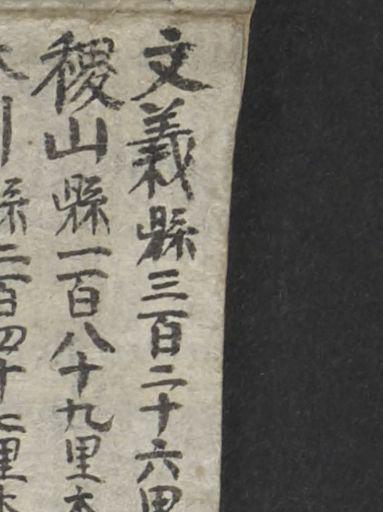 文義縣三百二十六里
稷山縣一百八十九里本
川縣二百四十七里本